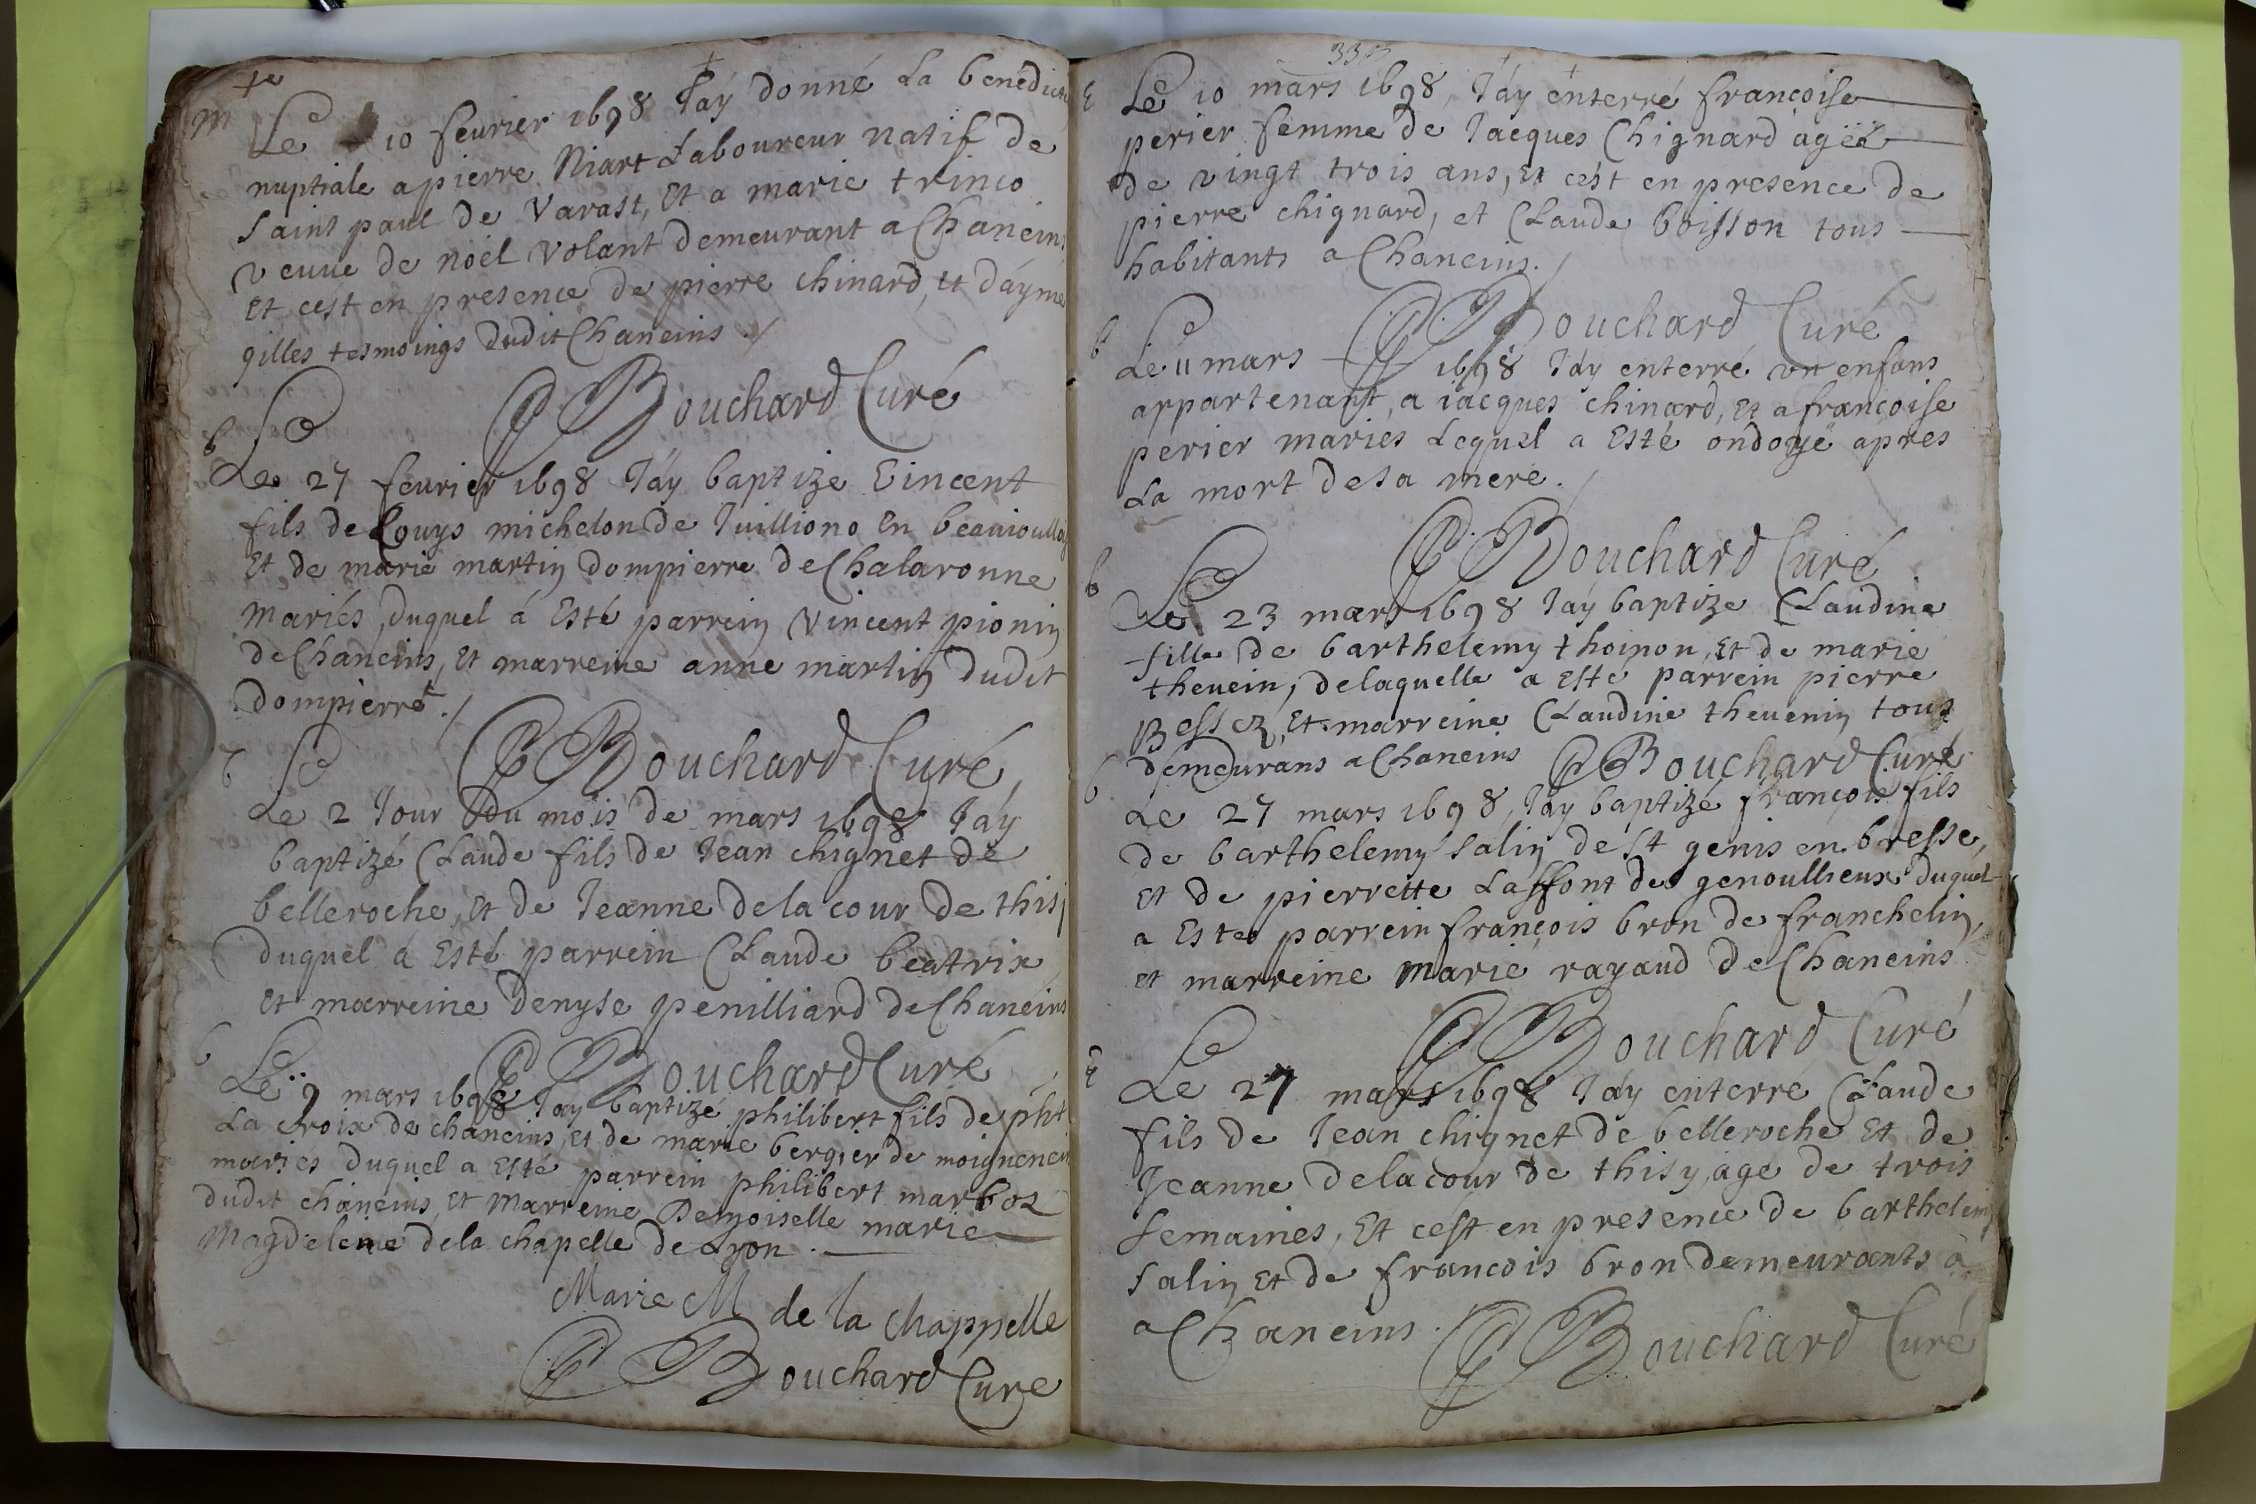 m
Le 10 feurier 1698 Jáy donné La benedict
nuptiale a pierre Niart Laboureur natif de
saint paul de Varast, Et a marie trinco
veuue de noël Volant demeurant a Chaneins
Et cest en presence de pierre chinard, et dáyme
gilles tesmoings dudit Chaneins ./
Bouchard Curé
b
Le 27 feurier 1698 Jáy baptize Vincent
fils de Louys michelon de Juilliono En beauioullois
Et de marie martin dompierre de Chalaronne
mariés, duquel á Esté parrein Vincent pionin
de Chaneins, Et marreine anne martin dudit
dompierre ./
Bouchard Curé
b
Le 2 Jour Du mois de mars 1698 Jáy
baptizé Claude fils de Jean chignet de
belleroche, Et de Jeanne dela cour de thisj
duquel á Esté parrein Claude beatrix
Et marreine denyse penilliard de Chaneins
Bouchard Curé
b
Le 9 mars 1698 Jay baptizé philibert fils de pht
La croix de chaneins, et de marie bergier de moigneneins
mariés duquel a Esté parrein philibert marbos
dudit chaneins, et Marreine Demoiselle marie
Magdeleine dela chapelle de Lyon .
Marie M de la chappelle
Bouchard Cure
E
Le 10 mars 1698, Jáy enterré françoise
perier femme de Jacques Chignard agëë
de vingt trois ans, Et cést en presence de
pierre chignard, et Claude boisson tous
habitants a Chaneins./
Bouchard Curé
Le 11 mars 1698 Jáy enterré un enfans
appartenant, a iacques chinard, Et a françoise
perier maries Lequel a Esté ondoyé apres
La mort desa mere ./
Bouchard Curé
b
Le 23 mars 1698 Jay baptize Claudine
fille de barthelemy thoinon, Et de marie
theuein, delaquelle a Esté parrein pierre
Bessez, Et marreine Claudine theuenin tous
demeurans a Chaneins Bouchard Curé
b
Le 27 mars 1698, Jay baptizé françois fils
de barthelemy salin de st genis en bresse,
Et de pierrette Laffont de genoullieux duquel
a Este parrein françois bron de franchelin,
et marreine marie rayaud de Chaneins
Bouchard Curé
E
Le 27 mars 1698 Jáy enterré Claude
fils de Jean chignet de belleroche Et de
Jeanne delacour de thisy age de trois
semaines, Et cést en presence de barthelemy
salin Et de francois bron demeurants à
a Chaneins .
Bouchard Curé